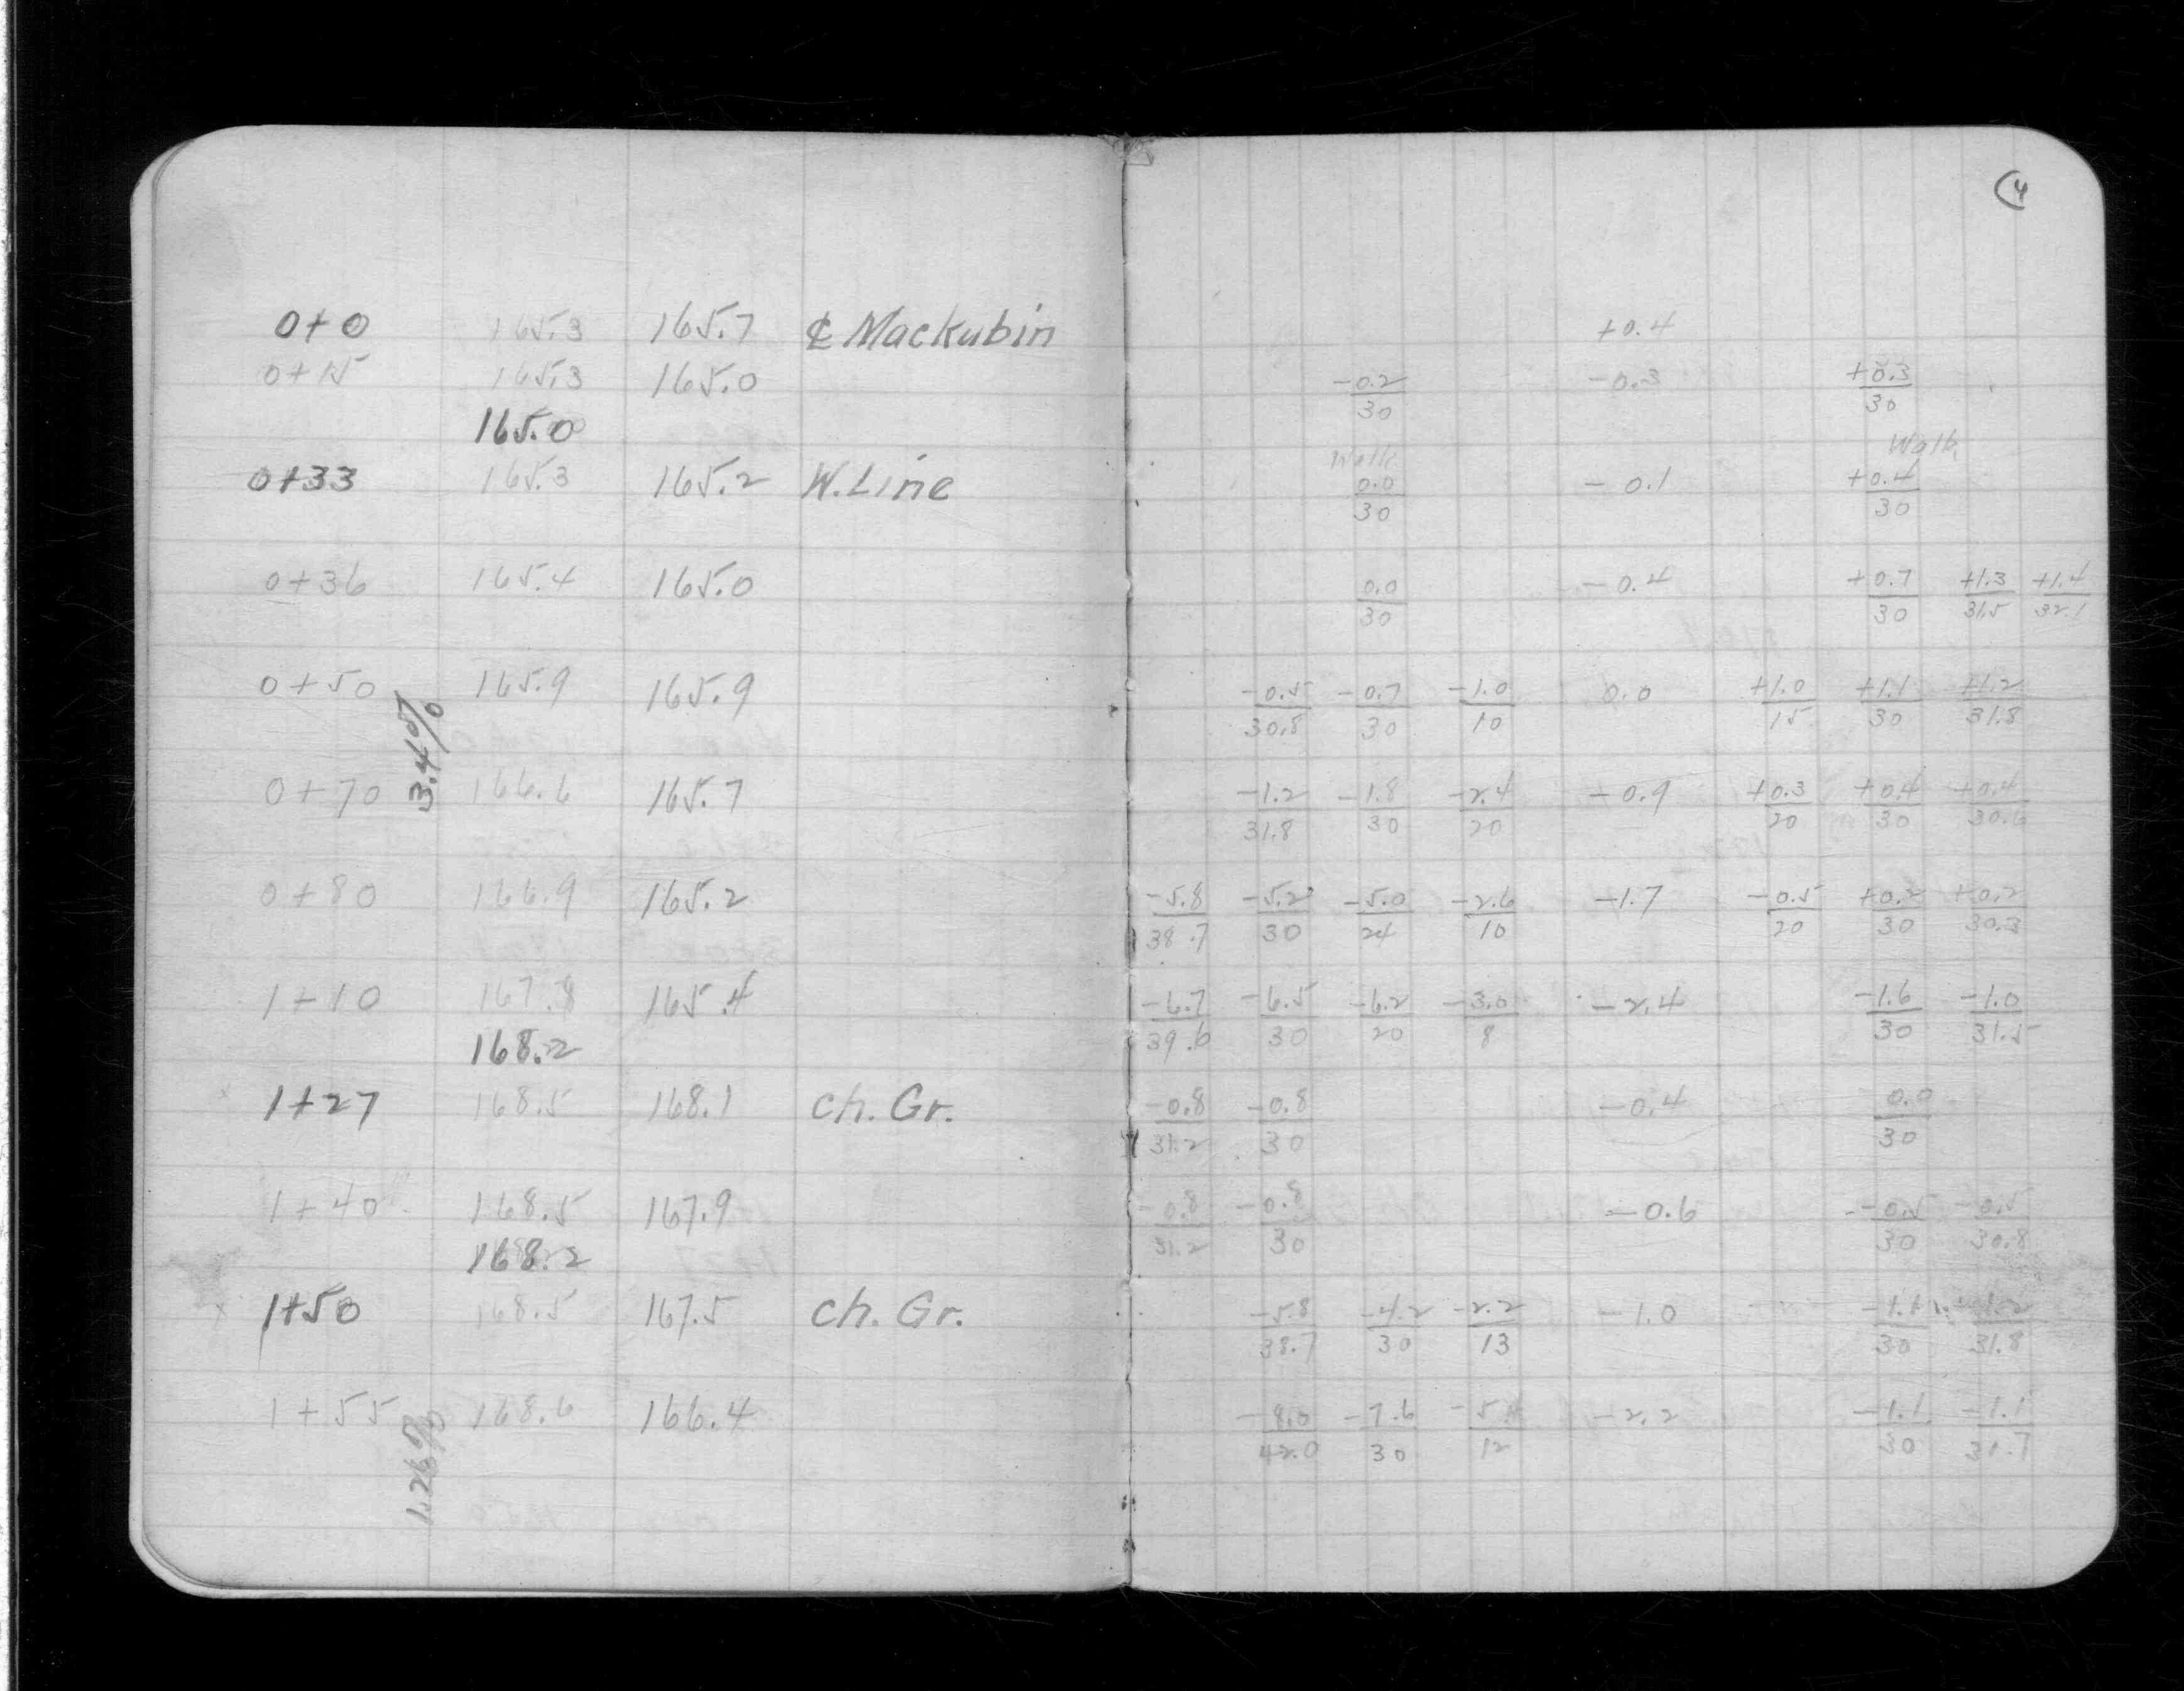 (4
0+0 165.3 165.7 ⅊ Mackubin +0.4
0+15 165.3 165.0 -0.2/30 -0.3 +0.3/30
165.0
Walk Walk
0+33 165.3 165.2 W. Line 0.0/30 -0.1 +0.4/30
0+36 165.4 165.0 0.0/30 -0.4 +0.7/30 +1.3/31.5 +1.4/32.1
0+50 165.9 165.9 -0.5/30.8 -0.7/30 -1.0/10 0.0 +1.0/15 +1.1/30 +1.2/31.8
3.4%
0+70 166.6 165.7 -1.2/31.8 -1.8/30 -2.4/20 -0.9 +0.3/20 +0.4/30 +0.4/30.6
0+80 166.9 165.2 -5.8/38.7 -5.2/30 -5.0/24 -2.6/10 -1.7 -0.5/20 +0.2/30 +0.2/30.3
1+10 167.8 165.4 -6.7/39.6 -6.5/30 -6.2/20 -3.0/8 -2.4 -1.6/30 -1.0/31.5
168.2
x 1+27 168.5 168.1 ch. Gr. -0.8/31.2 -0.8/30 -0.4 0.0/30
1+40 168.5 167.9 -0.8/31.2 -0.8/30 -0.6 -0.5/30 -0.5/30.8
168.2
x 1+50 168.5 167.5 ch. Gr. -5.8/38.7 -4.2/30 -2.2/13 -1.0 -1.1/30 -1.2/31.8
1+55 168.6 166.4 -8.0/42.0 -7.6/30 -2.2 -1.1/30 -1.1/31.7
1.26%